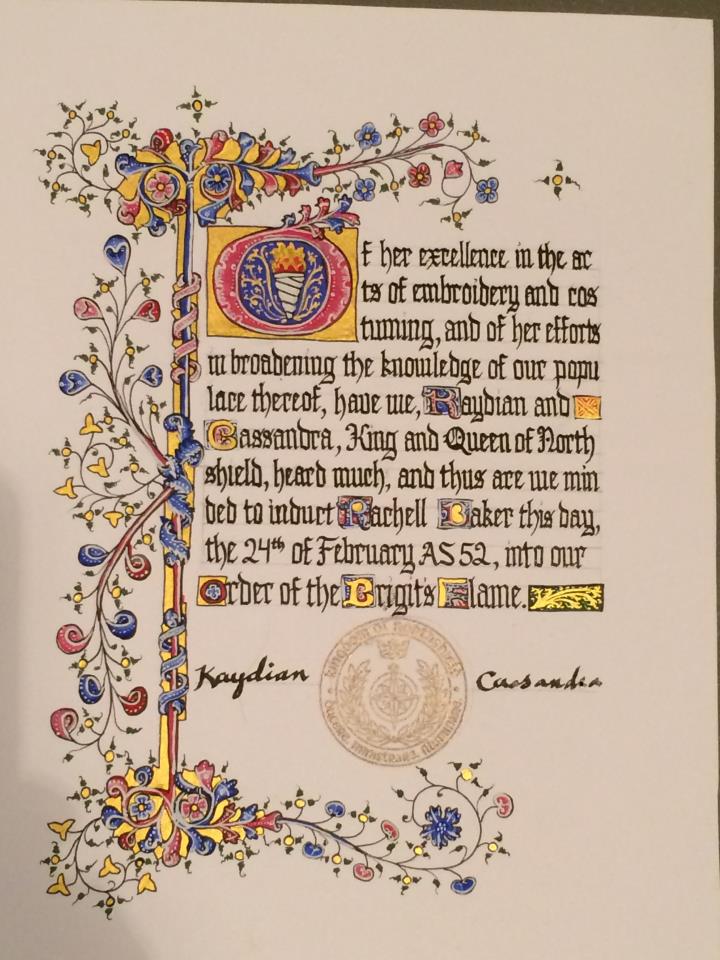 Of her excellence in the ac
ts of embroidery and cos
tuming, and of her efforts
in broadening the knowledge of our popu
lace thereof, have we, Kaydian and
Cassandra, King and Queen of North
shield, heard much, and thus are we min
ded to induct Rachell Baker this day,
the 24th of February AS 52, into our
Order of the Brigit's Flame.
Kaydian
Cassandra
KINGDOM OF NORTHSHIELD